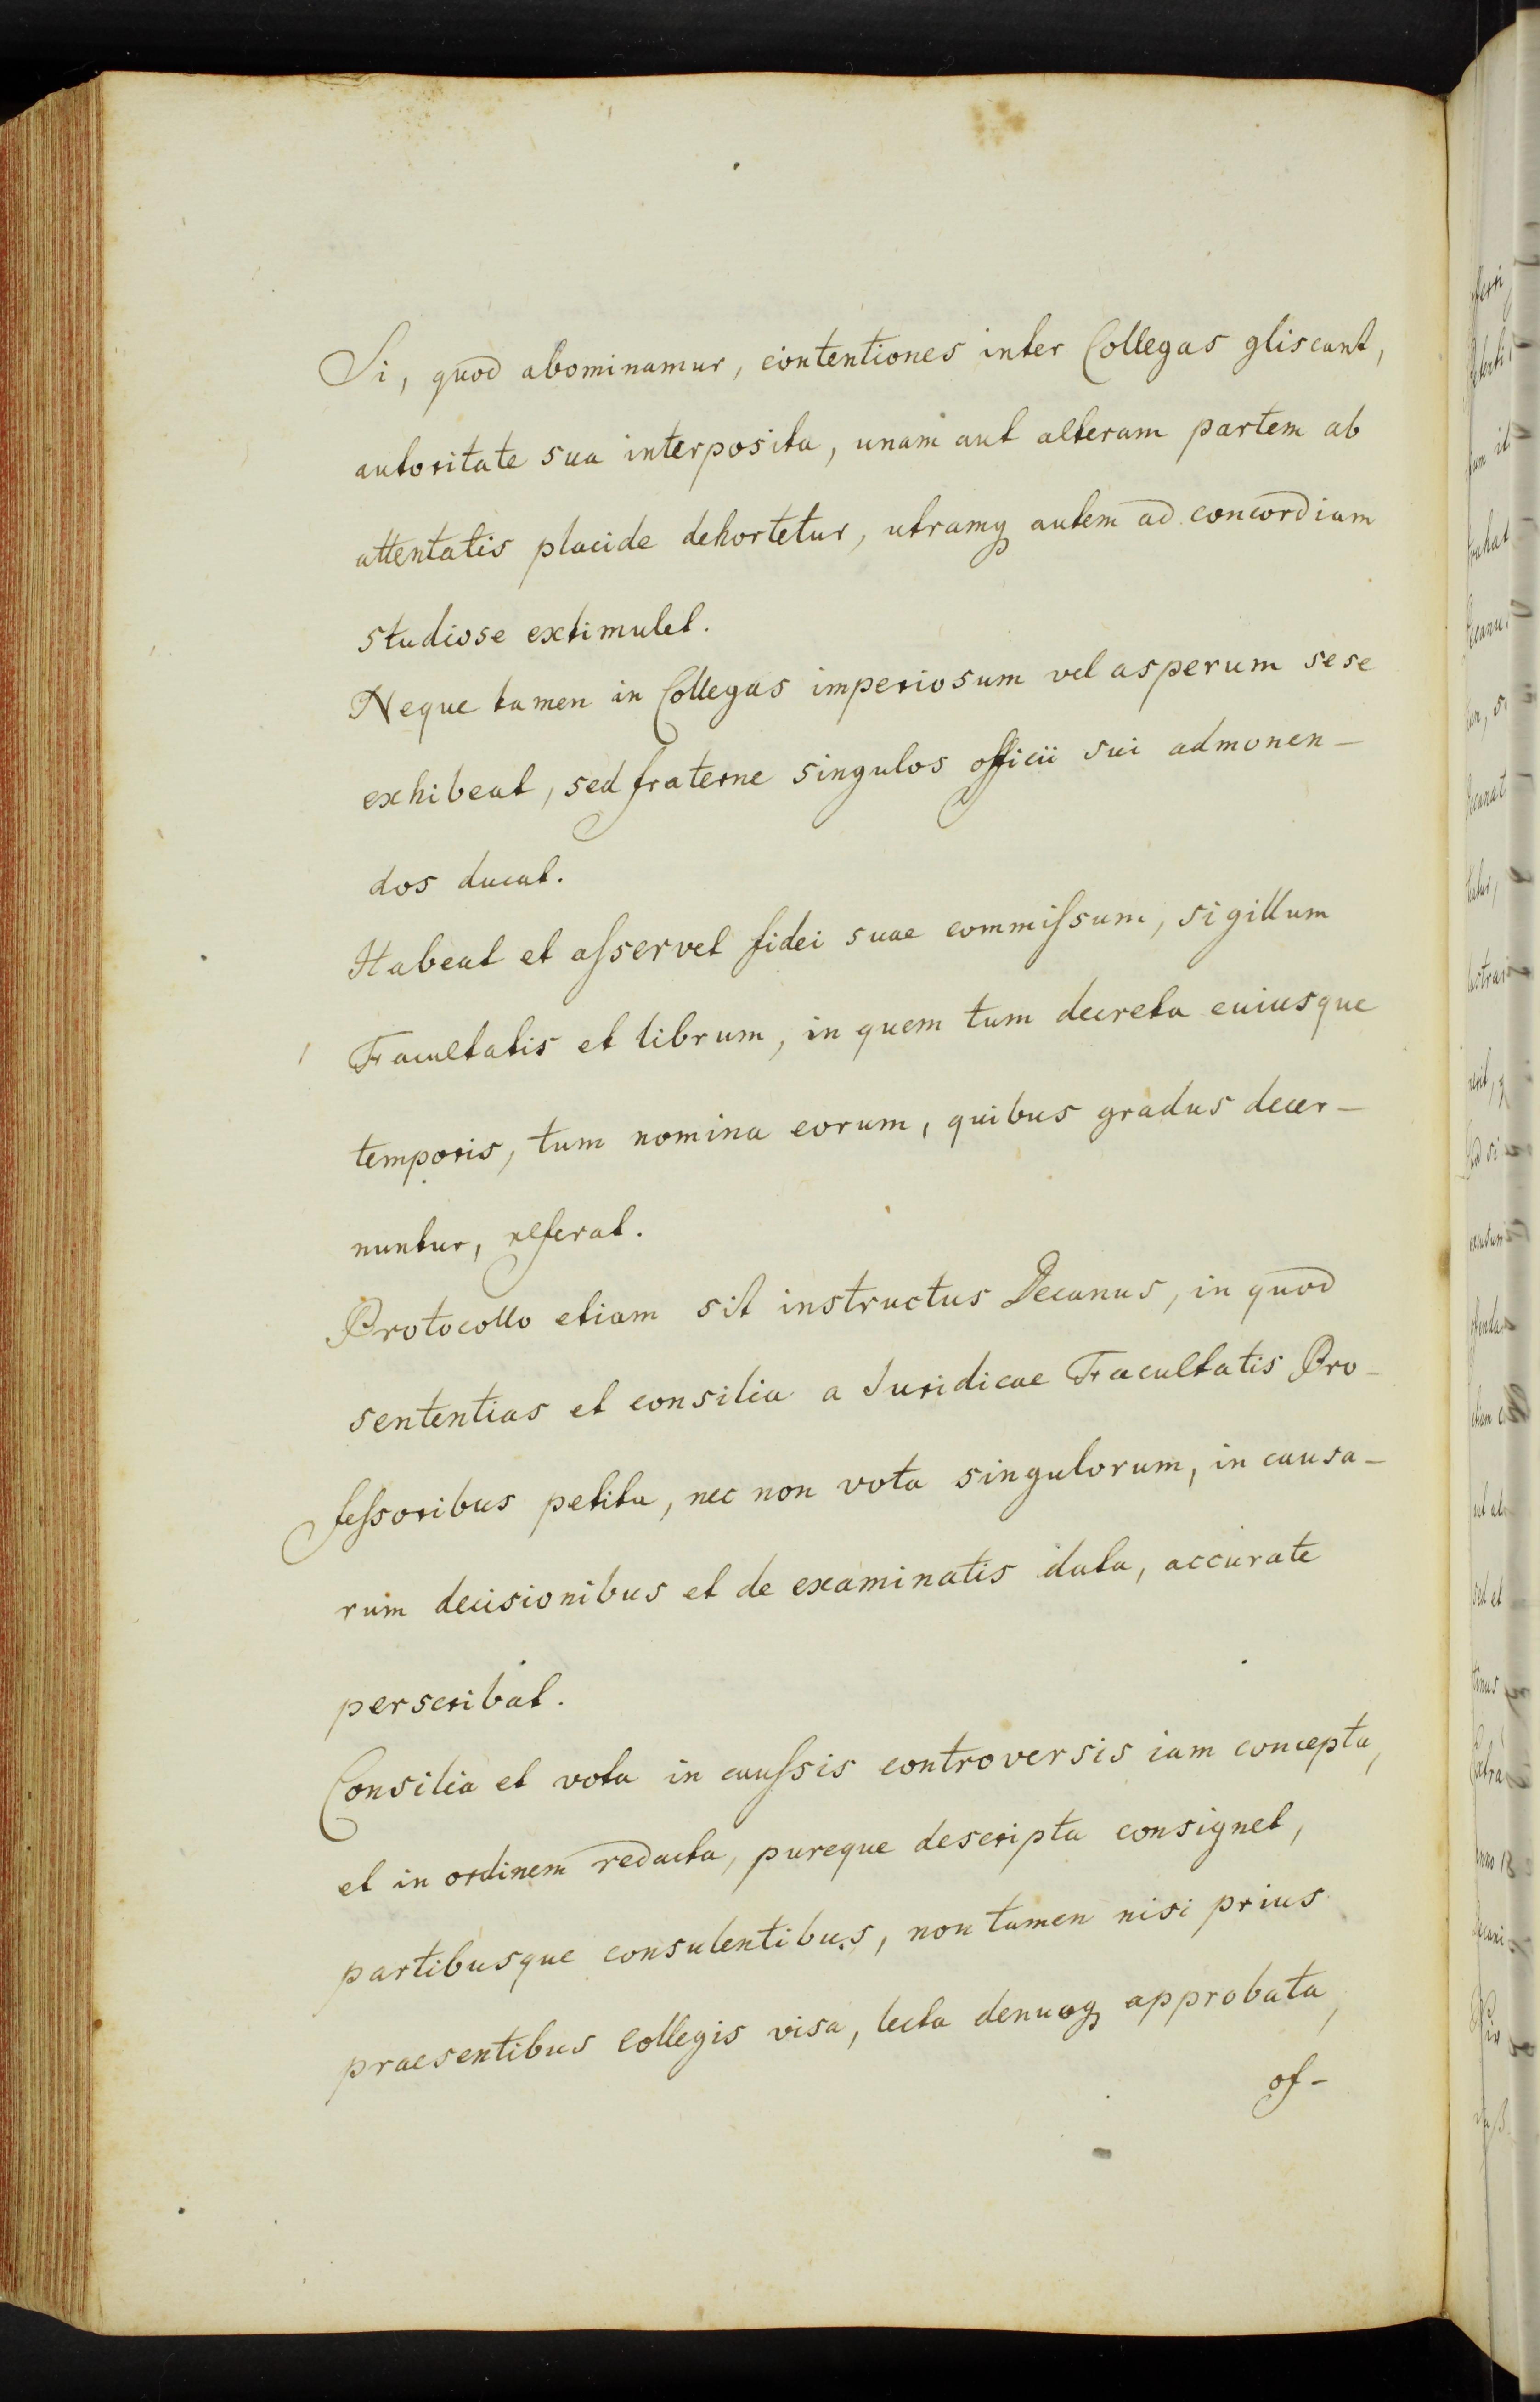 Si, quod abominamur, contentiones inter Collegas gliscant,
autoritate sua interposita, unam aut alteram partem ab
attentatis placide dehortetur, utramq autem ad concordiam
studiose extimulet.
Neque tamen in Collegas imperiosum vel asperum sese
exhibeat, sed fraterne singulos officii sui admonen-
dos ducat.
Habeat et aſservet fidei suae commiſsum, sigillum
Facultatis et librum, in quem tum decreta cuiusque
temporis, tum nomina eorum, quibus gradus decer-
nuntur, referat.
Protocollo etiam sit instructus Decanus, in quod
sententias et consilia a Juridicae Facultatis Pro-
feſsoribus petita, nec non vota singulorum, in causa-
rum decisionibus et de examinatis data, accurate
perscribat.
Consilia et vota in cauſsis controversis iam concepta,
et in ordinem redacta, pureque descripta consignet,
partibusque consulentibus, non tamen nisi prius
praesentibus collegis visa, lecta denuoq approbata,
of-